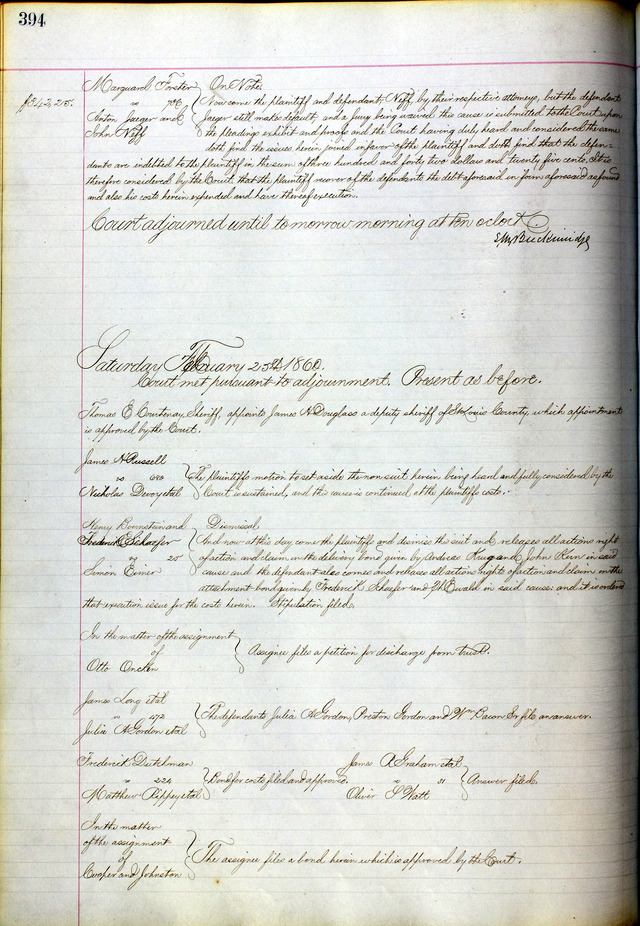 394
Marquard Forster } On Note
$342,25. vs 706 Now come the plaintiff and defendant, Neff, by their respective attorneys, but the defendant
Anton Jaeger and Jaeger still makes default, and a jury being waived the cause is submitted to the Court upon
John Neff the pleadings exhibit and proofs and the Court having duly heard and considered the same
doth find the issues herein joined in favor of the plaintiff and doth find that the defen-
dants are indebted to the plaintiff in the sum of three hundred and forty two dollars and twenty five cents. It is
therefore considered by the Court that the plaintiff recover of the defendants the debt aforesaid in form aforesaid as found
and also his costs herein expended and have thereof execution.
Court adjourned until tomorrow morning at ten oclock
Saturday February 25th 1860.
Court met pursuant to adjournment. Present as before.
Thomas C Courtenay Sheriff, appoints James N Douglass a deputy sheriff of St Louis County, which appointment
is approved by the Court.
James N Russell
vs } The plaintiffs motion to set aside the non suit herein being heard and fully considered by the
Nicholas Devoy etal Court is sustained, and the cause is continued at the plaintiffs costs.
Henry Boernstein and } Dismissal
Frederick Schaefer And now at this day come the plaintiff and dismiss the suit and release all actions right
vs 25 of action and claim on the delivery bond given by Andreas Krug and John Kern in said
Simon Eimer cause and the defendant also comes and release all actions rights of action and claim on the
attachment bond given by Frederick Schaefer and Ewald in said cause. and it is ordered
that execution issue for the costs herein. Stipulation filed.
In the matter of the assignment
of } Assignee files a petition for discharge from trust.
Otto Oncken
James Long etal
vs 472 } The defendants Julia A Gordon, Preston Gordon and Wm Bacon Sr file an answer.
Julia A Gordon etal
Frederick Dutelman
vs 224 } Bond for costs filed and approved.
Matthew Rippey etal
James A Graham etal
vs 31 } Answer filed.
Oliver S Watt
In the matter
of the assignment
of } The assignee files a bond herein which is approved by the Court.
Cooper and Johnston